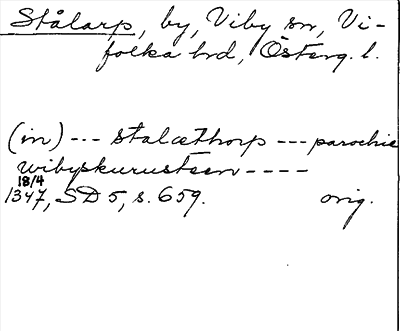 Stålarp, by, Viby sn, Vi-
folka hrd, Österg. l.
(in) --- stalæthorp --- parochie
wibyskurusteen ----
18/4
1347, SD 5, s. 659. orig.